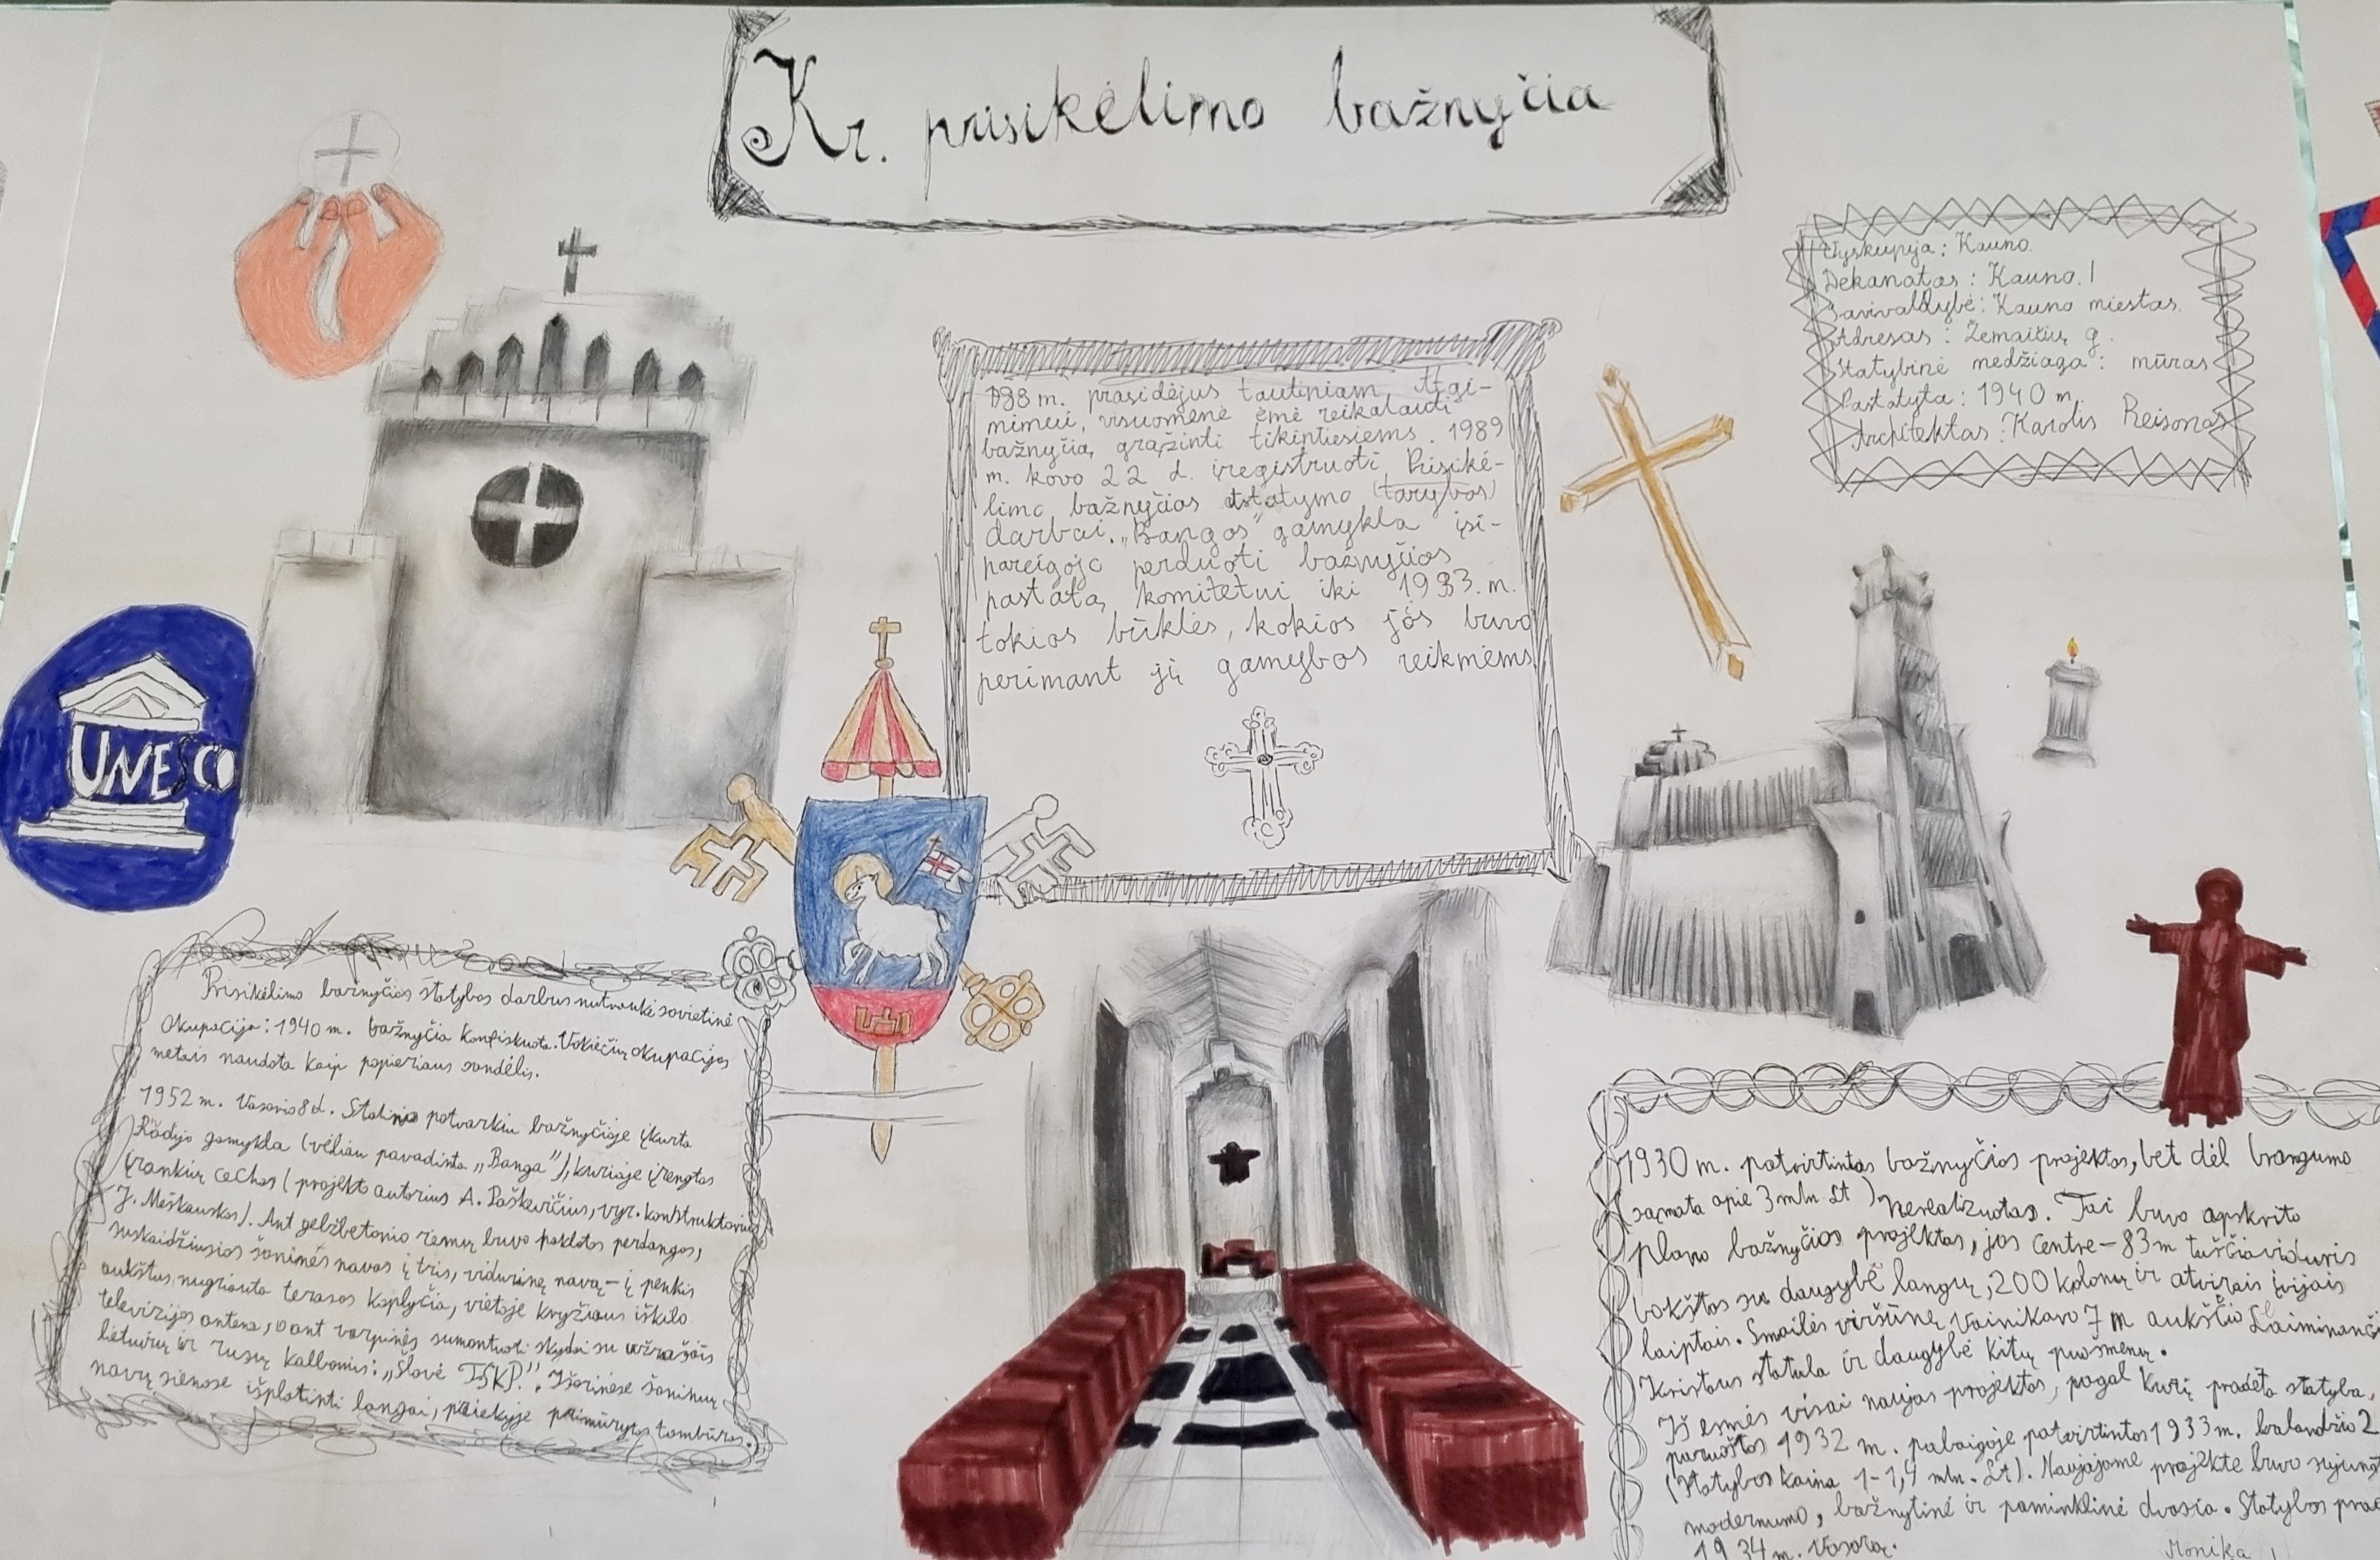 Kr. prisikėlimo bažnyčia
Vyskupija: Kauno
Dekanatas: Kauno I
Savivaldybė: Kauno miestas
Adresas: Žemaičių g.
Statybinė medžiaga: mūras
Pastatyta: 1940 m.
Architektas: Karolis Reisonas
m. prasidėjus tautiniam Atgi-
mimui, visuomenė ėmė reikalauti
bažnyčią grąžinti tikintiesiems. 1989
m. kovo 22 d. įregistruoti Prisikė-
limo bažnyčios atstatymo (tarybos)
darbai. „Bangos" gamykla įsi-
pareigojo perduoti bažnyčios
pastatą komitetui iki 1933 m.
tokios būklės, kokios jos buvo
perimant jį gamybos reikmėms
UNESCO
Prisikėlimo bažnyčios statybos darbus nutraukė sovietinė
okupacija: 1940 m. bažnyčia konfiskuota. Vokiečių okupacijos
metais naudota kaip popieriaus sandėlis.
1952 m. Vasario 8 d. Stalino patvarkiu bažnyčioje įkurta
Radijo gamykla (vėliau pavadinta „Banga"), kurioje įrengtas
įrankių cechas (projekto autorius A. Paškevičius, vyr. konstruktorius
J. Meškauskas). Ant gelžbetonio rėmų buvo paklotos perdangos,
suskaidžiusios šonines navas į tris, vidurinę navą – į penkis
aukštus, nugriauta terasos koplyčia, vietoje kryžiaus iškilo
televizijos antena, o ant varpinės sumontuoti skydai su užrašais
lietuvių ir rusų kalbomis: „Slovė TSKP.". Išorinėse šoninių
navų sienose išplatinti langai, priekyje primūrytas tambūras.
1930 m. patvirtintas bažnyčios projektas, bet dėl brangumo
(sąmata apie 3 mln Lt) nerealizuotas. Tai buvo apskrito
plano bažnyčios projektas, jos centre – 83 m tuščiaviduris
bokštas su daugybė langų, 200 kolonų ir atvirais įvijais
laiptais. Smailės viršūnę vainikavo 7 m aukščio Laiminanči
Kristaus statula ir daugybė kitų puošmenų.
Iš esmės visai naujas projektas, pagal kurį pradėta statyba,
paruoštas 1932 m. pabaigoje patvirtintas 1933 m. balandžio 2
(Statybos kaina 1-1,4 mln. Lt). Naujajame projekte buvo sujungt
modernumo, bažnytinė ir paminklinė dvasia. Statybos prad
1934 m. Vasarą.
Monika